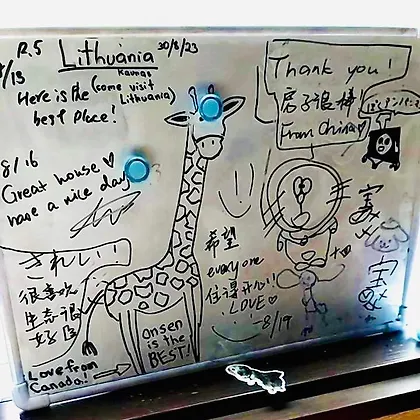 R.5
Lithuania
Kaunas
30/8/23
(come visit
Lithuania)
Here is the
best place!
8/16
Great house ♡
have a nice day
きれい!!
很喜欢
生态很
Love from
Canada!
onsen
is the
BEST!
Thank you!
房子很棒
From China ♡
!!
希望
everyone
住得开心!!
LOVE ♡
-8/19